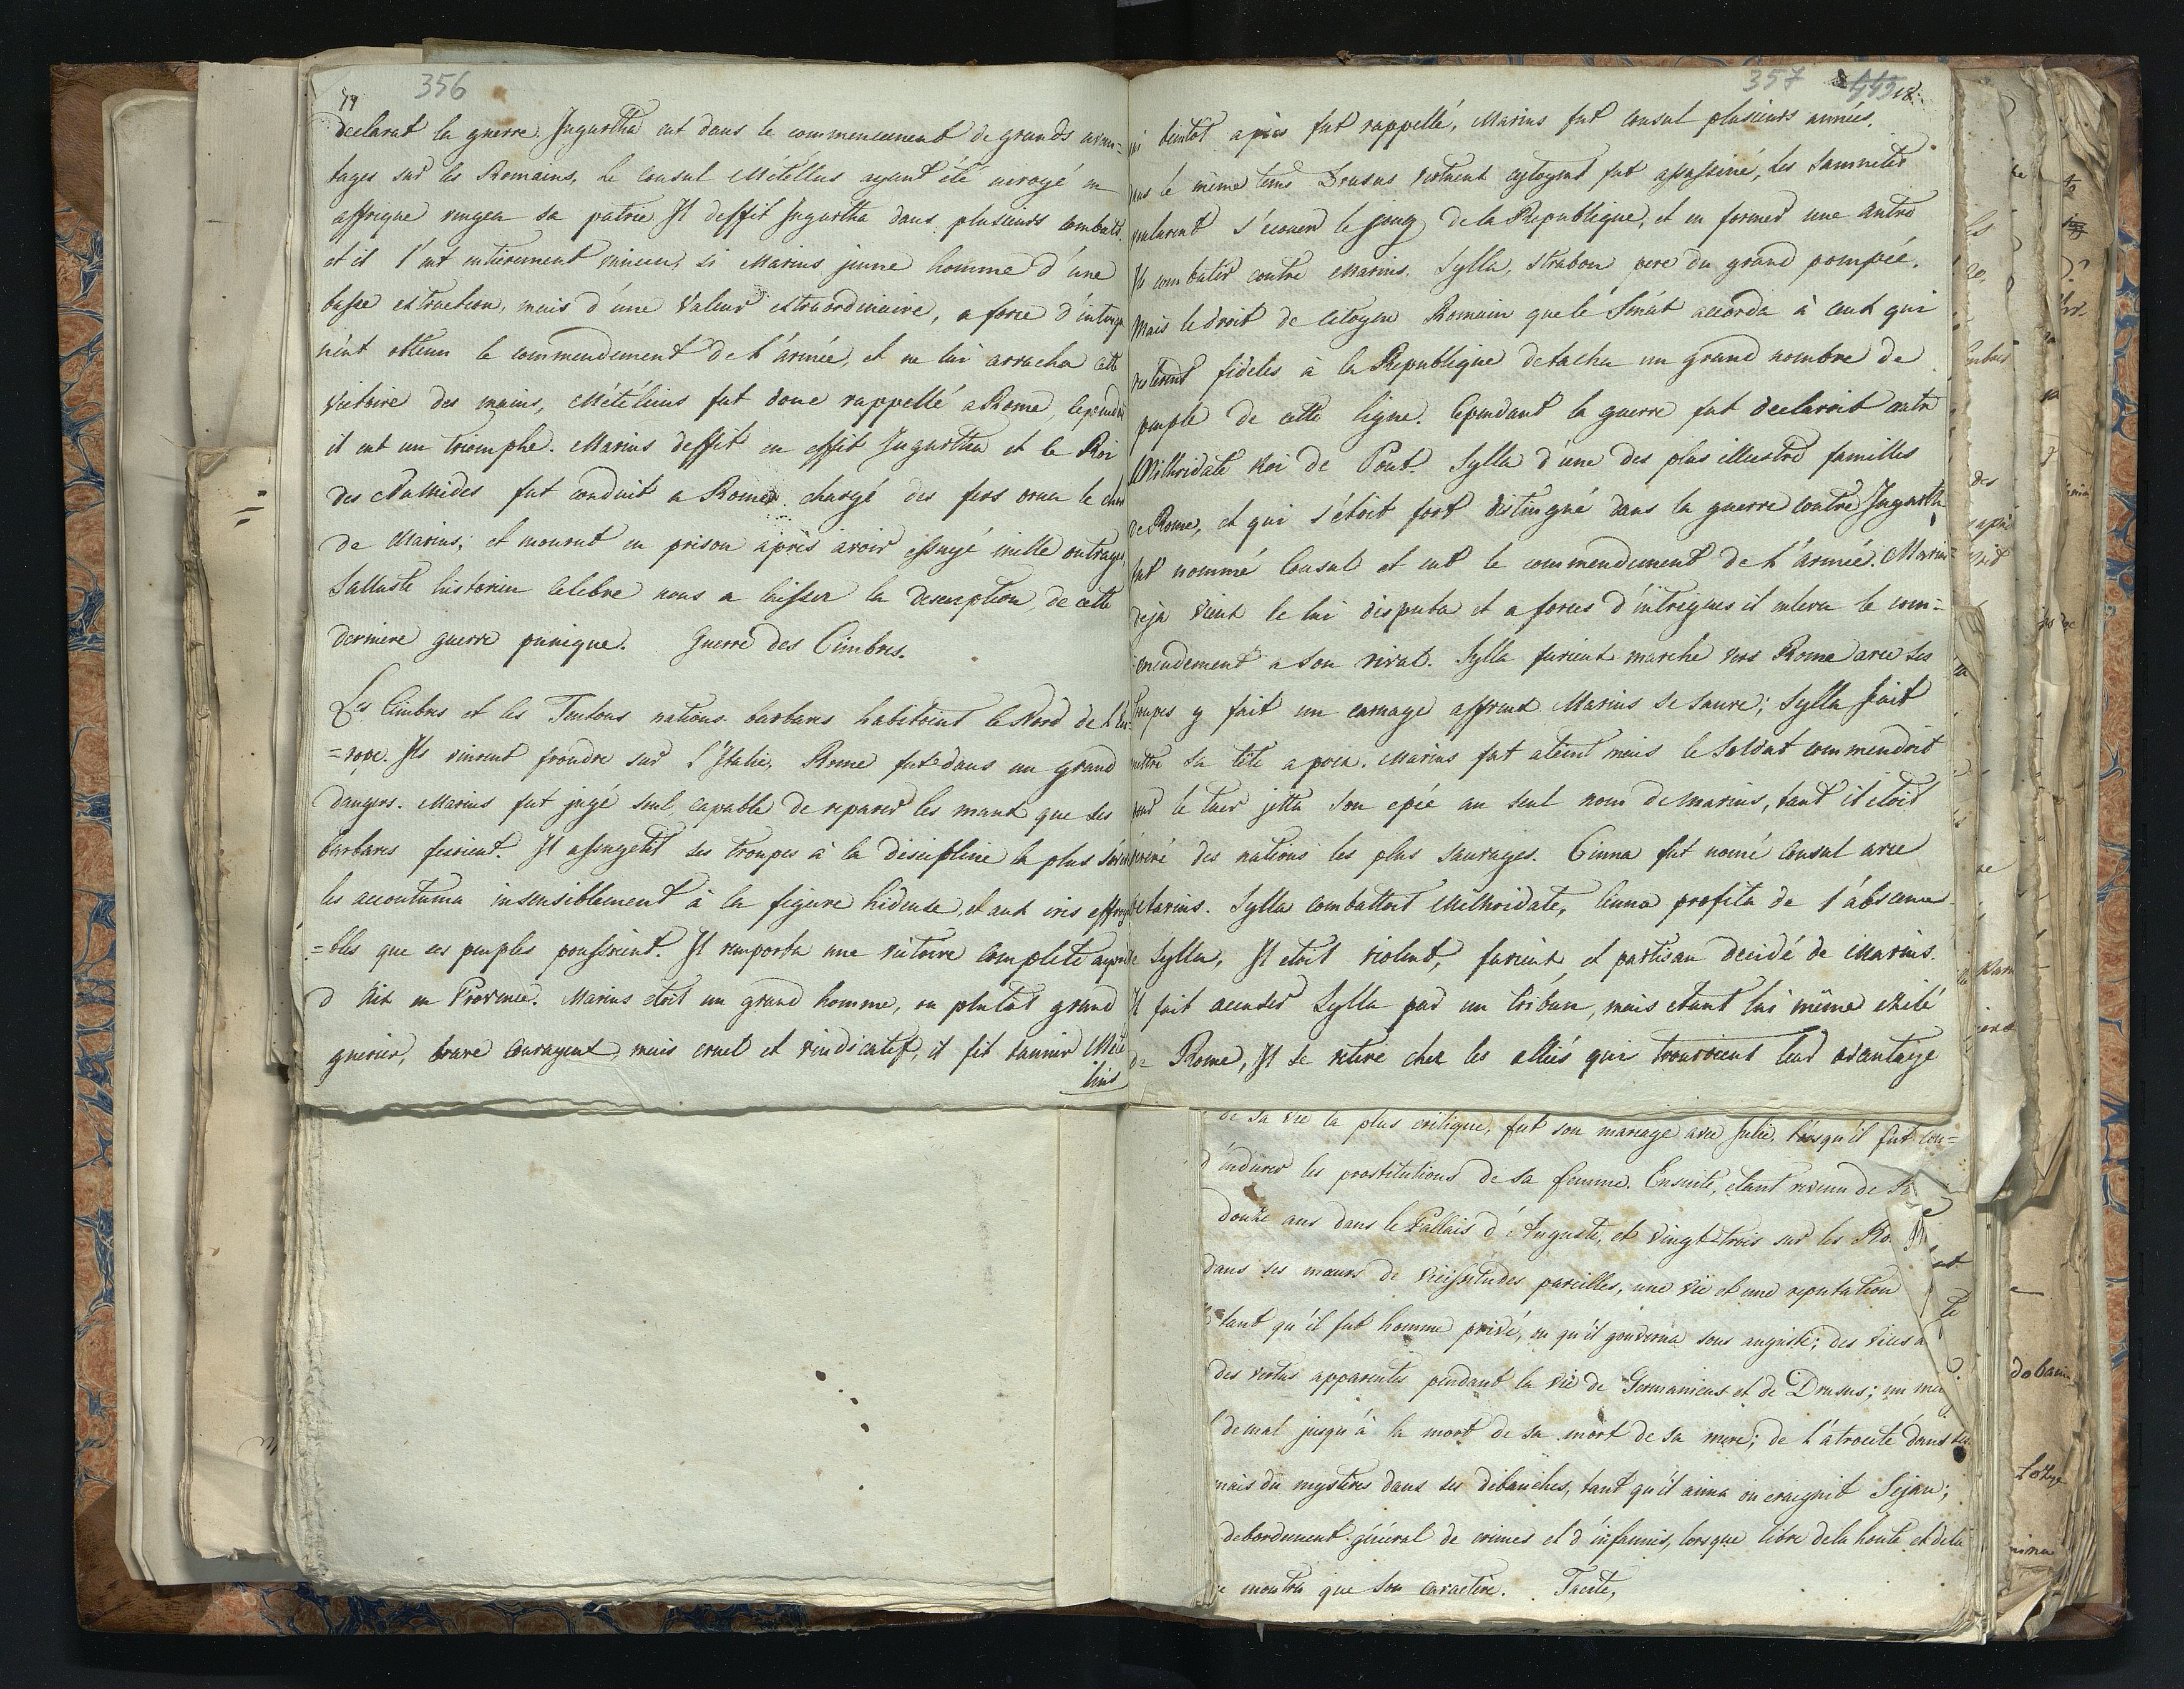 356
77
declarat la guerre. Jugurtha eut dans le commencement de grands avan=
tages sur les Romains. Le Consul Métellus ayant été envoyé en
affrique vengea sa patrie Il deffit Jugurtha dans plusieurs combats.
et il l'eut entierement vaincu, si Marius jeune homme d'une
basse extraction, mais d'une Valeur extraordinaire, a force d'intrigu
n'eut obtenu le commendement de l'armée, et ne lui arracha cette
Victoire des mains, Métélius fut donc rappellé a Rome, Cependant
il eut un triomphe. Marius deffit en effit Jugurtha et le Roi
des Numides fut conduit a Rome chargé des fers orna le char
de Marius; et mourut en prison après avoir essuyé mille outrages,
Salluste historien Celebre nous a laisser la description de cette
derniere guerre punique. Guerre des Cimbres.
Les Cimbres et les Teutons nations barbares habitoient le Nord de l'Eu-
=rope. Ils vinrent froudre sur l'Italie, Rome fut dans un grand
dangers. Marius fut jugé seul capable de reparer les maux que ses
barbares fesoient. Il assugetit ses troupes à la discipline la plus sévère
les accoutuma insensiblement à la figure hideuse, et aux cris effroya
=bles que ces peuples poussoient. Il remporta une victoire complete auprès
d'Aix en Provence. Marius etoit un grand homme, ou plutôt grand
guerier, brave courageux mais cruel et vindicatif, il fit bannir Mété
lius
357 18.
qui bientôt apres fut rappellé, Marius fut Consul plusieurs années.
dans le même tems Drusus vertueux cytoyens fut assassiné, Les Samnites
voulurent s'écouer le joug de la Republique, et en former une autre
Il combatir contre Marius. Sylla, Strabon pere du grand pompée.
Mais le droit de Citoyen Romain que le Sénat accorda à ceux qui
resterent fideles à la Republique detacha un grand nombre de
peuple de cette ligne. Cependant la guerre fut declaroit contre
Mithridate Roi de Pont. Sylla d'une des plus illustre familles
de Rome, et qui s'étoit fort distingué dans la guerre contre Jugurtha
fut nommé Consul et eut le commendement de l'armée. Marius
deja vieux le lui disputa et a forces d'intrigues il enleva le com=
mendement a son rival. Sylla furieux marche vers Rome avec ses
troupes y fait un carnage affreux Marius se sauve; Sylla fait
mettre sa tête a prix. Marius fut ateint mais le Soldat commendoit
pour le tuer jetta son epée au seul nom de marius, tant il etoit
des nations les plus sauvages. Cinna fut nomé Consul avec
Octavius. Sylla combattoit Mithridate, Cinna profita de l'absence
de Sylla, Il etoit violent, furieux, et partisan decidé de Marius.
Il fait accuser Sylla par un tribun, mais etant lui même exilé
de= Rome, Il se retire chez les alliés qui trouvoient leur avantage
de sa vie la plus critique, fut son mariage avec Julie, lorsqu'il fut con=
d'endurer les prostitutions de sa femme. Ensuite, etant revenu de
douze ans dans le Pallais d'Auguste, et vingt-trois sur les Ro.
dans ses mœurs de vicissitudes pareilles, une vie et une reputation
tant qu'il fut homme privé, ou qu'il gouverna sous auguste; des vices
des vertus apparentes pendant la vie de Germanicus et de Drusus; un
de mal jusqu'à la mort de sa mort de sa mere; de l'atrocité dans
mais du mysteres dans ses débauches, tant qu'il aima ou craignit Séjan;
debordement général de crimes et d'infamies, lorsque libre de la honte et de la
montra que son caractère. Tacite,